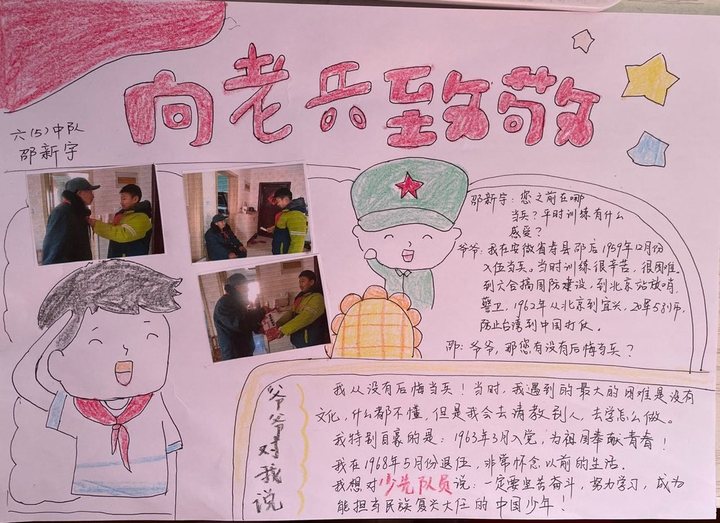 向老兵致敬
六(5)中队
邵新宇
邵新宇：您之前在哪
当兵？平时训练有什么
感受？
爷爷：我在安徽省寿县邵店1959年12月份
入伍当兵。当时训练很辛苦，很困难。
到大会搞国防建设，到北京站放哨，
警卫，1962年从北京到宜兴，
防止台湾到中国打仗。
邵：爷爷，那您有没有后悔当兵？
爷爷对我说
我从没有后悔当兵！当时，我遇到的最大的困难是没有
文化，什么都不懂，但是我会去请教别人，去学怎么做。
我特别自豪的是：1963年3月入党，为祖国奉献青春！
我在1968年5月份退伍，非常怀念以前的生活。
我想对少先队员说：一定要坚苦奋斗，努力学习，成为
能担当民族复兴大任的中国少年！